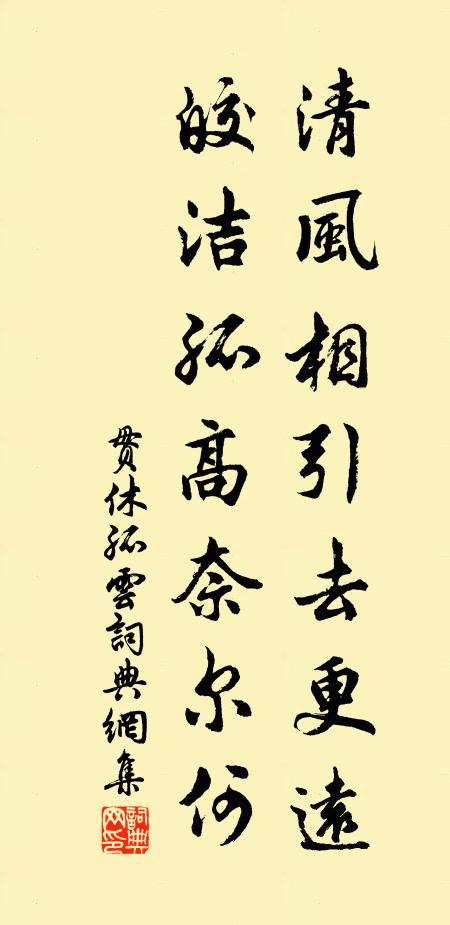 清風相引去更遠
皎洁孤高奈尔何
貫休孤雲詞典網集
詞典网印